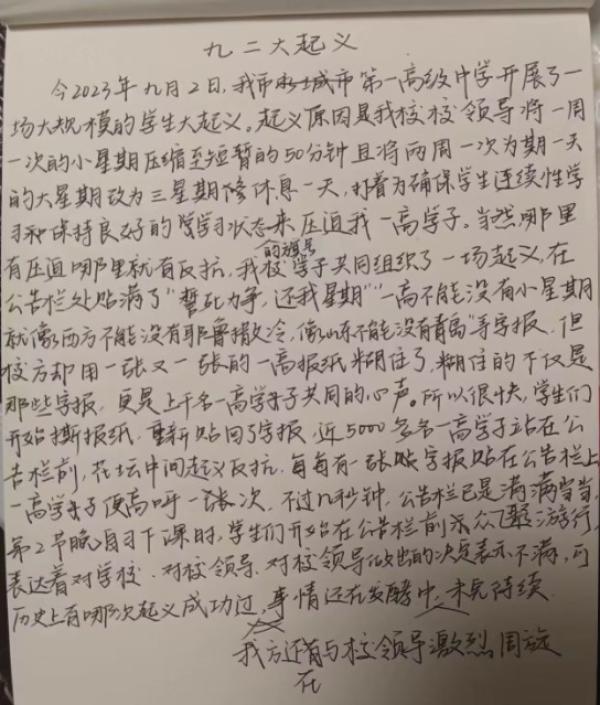 九二大起义
今2023年九月2日，我市永城市第一高级中学开展了一
场大规模的学生大起义。起义原因是我校校领导将一周
一次的小星期压缩至短暂的50分钟且将两周一次为期一天
的大星期改为三星期修休息一天，打着为确保学生连续性学
习和保持良好的学习状态来压迫我一高学子。当然哪里
的旗号
有压迫哪里就有反抗，我校学子共同组织了一场起义，在
公告栏处贴满了“誓死力争，还我星期”“一高不能没有小星期
就像西方不能没有耶鲁撒冷，像山东不能没有青岛”等字报，但
校方却用一张又一张的一高报纸糊住了，糊住的不仅是
那些字报，更是上千名一高学子共同的心声。所以很快，学生们
开始撕报纸，重新贴回了字报，近5000多名一高学子站在公
告栏前，花坛中间起义反抗，每每有一张字报贴在公告栏上
一高学子便高呼一张次，不过几秒钟，公告栏已是满满当当，
第2节晚自习下课时，学生们开始在公告栏前示众飞聚游行，
表达着对学校、对校领导、对校领导做出的决定表示不满，可
历史上有哪次起义成功过，事情还在发酵中，未完待续
我方还有与校领导激烈周旋
在